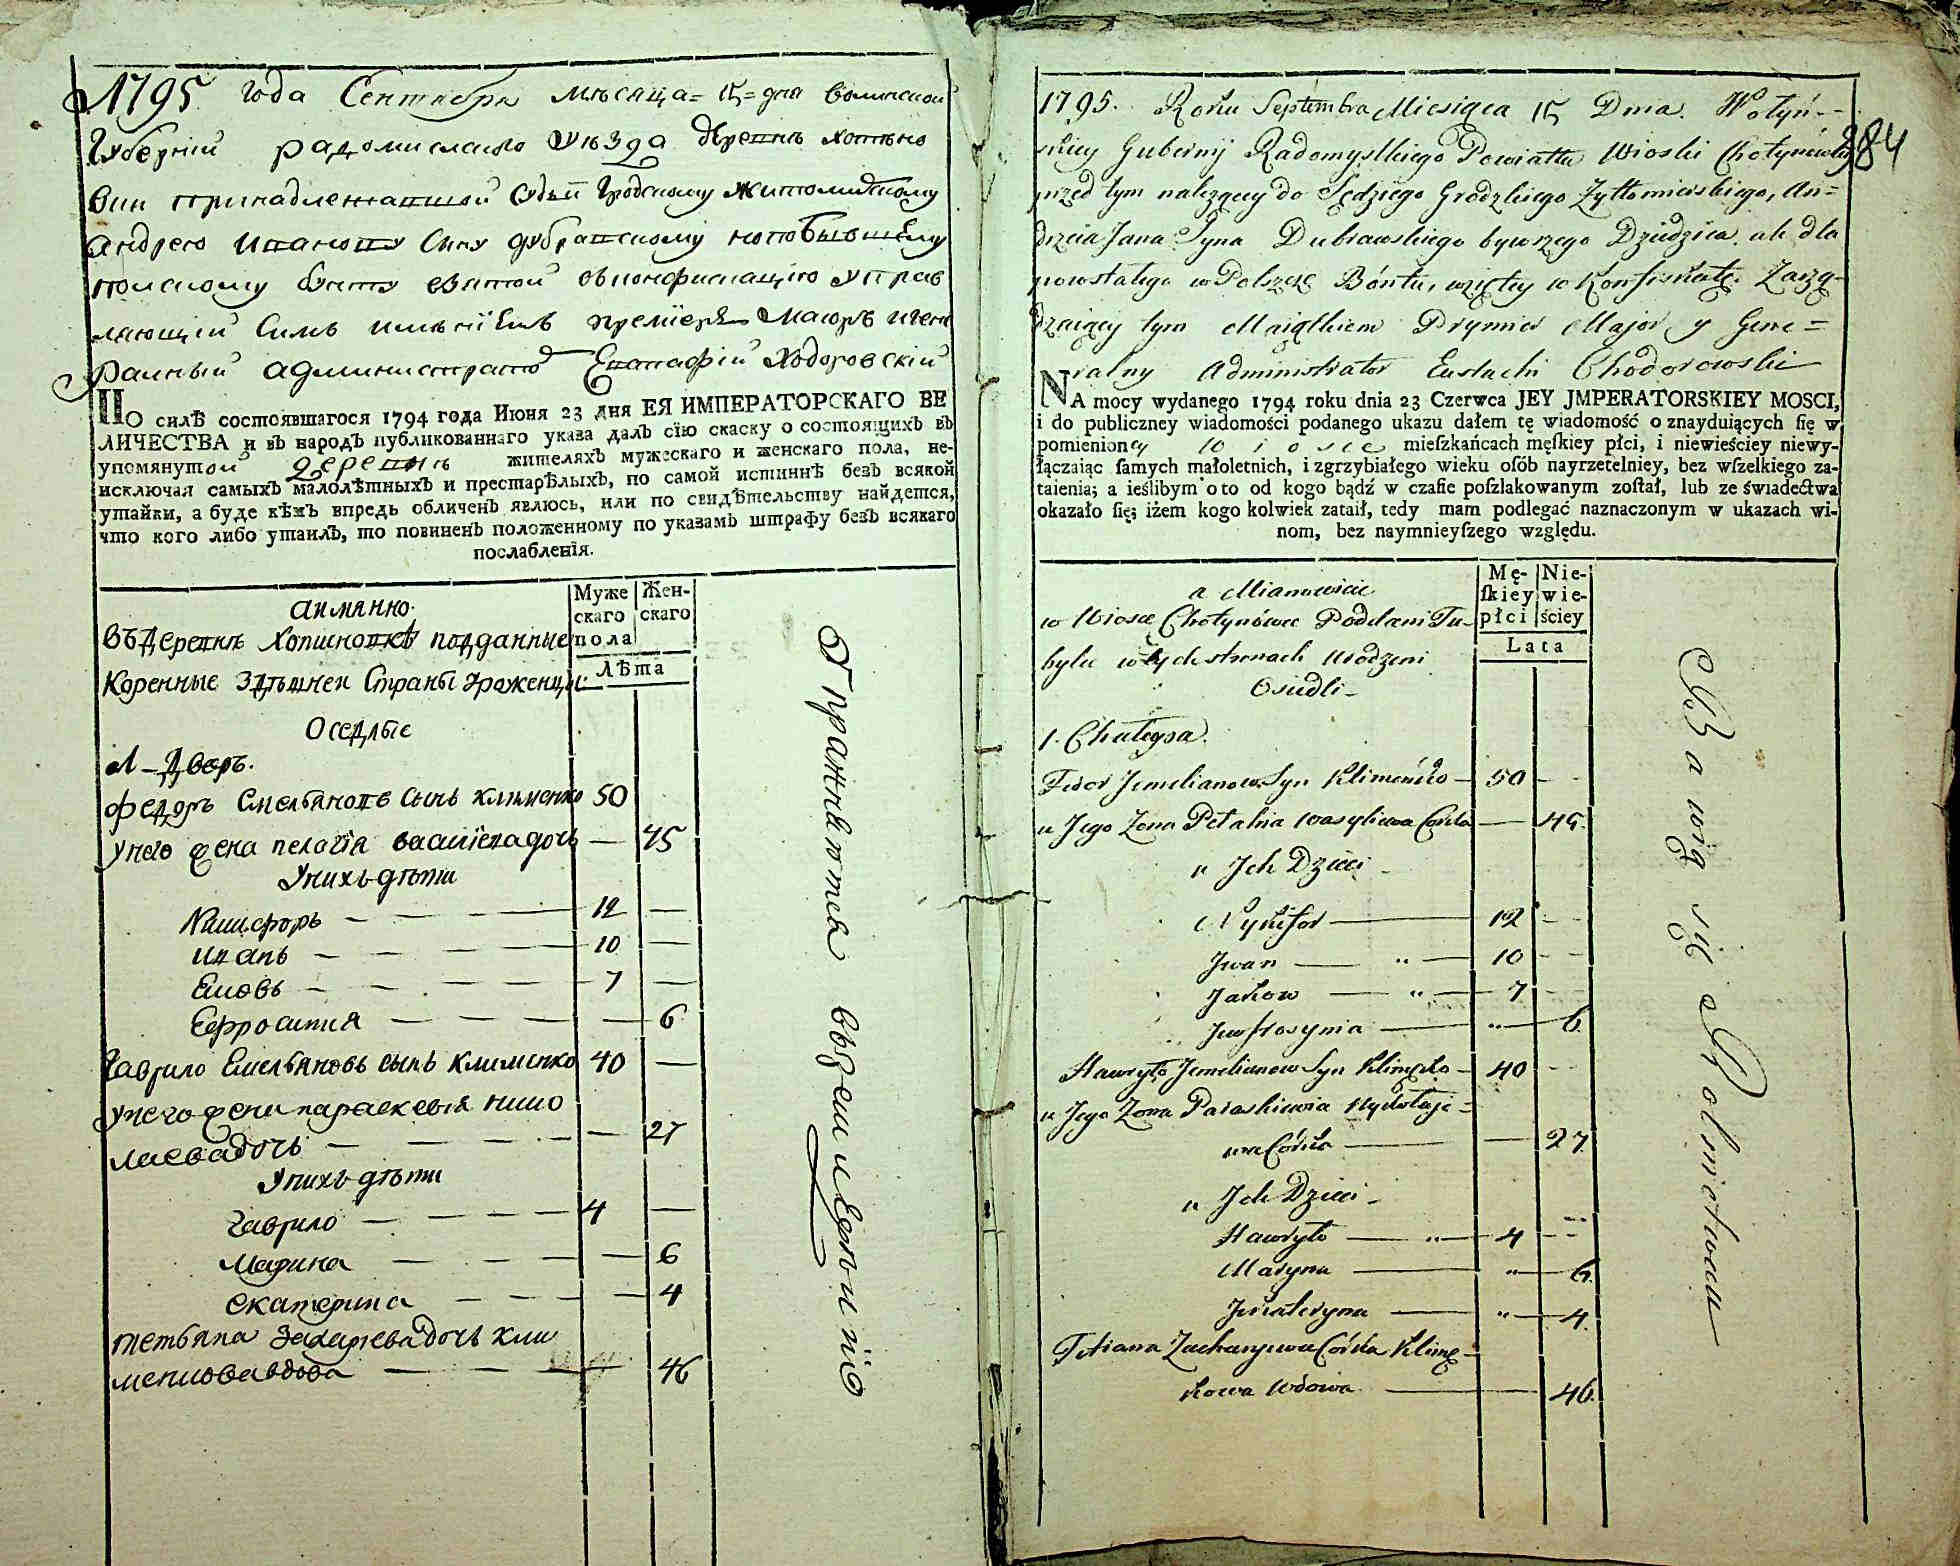 1795 года Сентября месяца = 15 = дня Волынской
Губернїи радомислского Уѣзда деревнѣ хотѣно
вки принадлежавшой Судьи Гродскому Житомирскому
андрею Иванову Сину дубравскому
полскому бунту взятой вконфискацїю Управ
ляющїй Симъ имѣнїемъ премїеръ маїоръ игене
ралный администраторъ Евстафїй Ходоровскїй
ПО силѣ состоявшагося 1794 года Июня 23 дня ЕЯ ИМПЕРАТОРСКАГО ВЕ
ЛИЧЕСТВА и въ народъ публикованнаго указа далъ сїю скаску о состоящихъ въ
упомянутой деревнѣ жителяхъ мужескаго и женскаго пола, не-
исключая самыхъ малолѣтныхъ и престарѣлыхъ, по самой истиннѣ безъ всякой
утайки, а буде кѣмъ впредь обличенъ явлюсь, или по свидѣтельству найдется,
что кого либо утаилъ, то повиненъ положенному по указамъ штрафу безъ всякаго
послабленїя.
аимянно
Муже
скаго
пола
Жен-
скаго
Лѣта
въ Деревнѣ Хотиновкѣ подданные
Коренные Здѣшней Страны Уроженцы
Оседлые
1 - Дворъ.
Федоръ Емельяновъ Сынъ клименко 50
Унего жена пелагїя василїева дочь — 45
Унихъ дѣти
Никифоръ — 12 —
иванъ — 10 —
Яковъ — 7 —
Ефросинїя — 6
Гаврило Емельяновъ сынъ Клименко 40 —
Унего жена параскевїя нико
лаева дочь — 27
Унихъ дѣти
гаврило — 4 —
марина — 6
екатерина — 4
тетьяна Захарева Дочь кли
менкова вдова — 46
Упражняются въ земледѣлїи
1795. Roku Septembra Miesiąca 15 Dnia. Wołyń-
skiey Gubernij Radomyslkiego Powiatu Wioski Chotynówki
384
przed tym należącey do Sędziego Grodzkiego Żytomierskiego, An=
drzeia Jana Syna Dubrawskiego bywszego Dziedzica, ale dla
powstałego w Polszcze Bóntu, wziętey w Konfiskatę. Zarzą-
dzaiący tym Maiątkiem Prymier Major y Gene=
ralny Administrator Eustachi Chodorowski
NA mocy wydanego 1794 roku dnia 23 Czerwca JEY JMPERATORSKIEY MOSCI,
i do publiczney wiadomości podanego ukazu dałem tę wiadomość o znayduiących się w
pomienioney wiosce mieſzkańcach męſkiey płci, i niewieściey niewy-
łączaiąc ſamych małoletnich, i zgrzybiałego wieku oſób nayrzetelniey, bez wſzelkiego za-
taienia; a ieślibym o to od kogo bądź w czaſie poſzlakowanym zoſtał, lub ze świadectwa
okazało ſię; iżem kogo kolwiek zataił, tedy mam podlegać naznaczonym w ukazach wi-
nom, bez naymnieyſzego względu.
a Mianowicie
Mę-
ſkiey
płci
Nie-
wie-
ściey
Lata
w Wiosce Chotynówce Poddani Tu-
bylce w tych stronach Urodzeni
Osiedli -
1. Chałupa.
Fedor Jemelianow Syn Klimeńko — 50 -
u Jego Żona Pelahia Wasyliewa Córka — 45.
u Jch Dzieci
Nykifor — 12 -
Jwan — " — 10 -
Jakow — " — 7 -
Jewfrosynia — " — 6.
Hawryło Jemelianow Syn Klimeńko — 40 -
u Jego Żona Paraskiewia Mykołaje=
wa Córka — 27.
u Jch Dzieci -
Hawryło — " — 4 -
Maryna — " — 6.
Jekateryna — " — 4.
Tetiana Zacharyewa Córka Klimę-
kowa Wdowa — 46.
Bawią się Rolnictwem